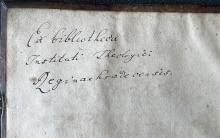 Ex bibliotheca
Instituti Theologici
Reginaehradecensis.